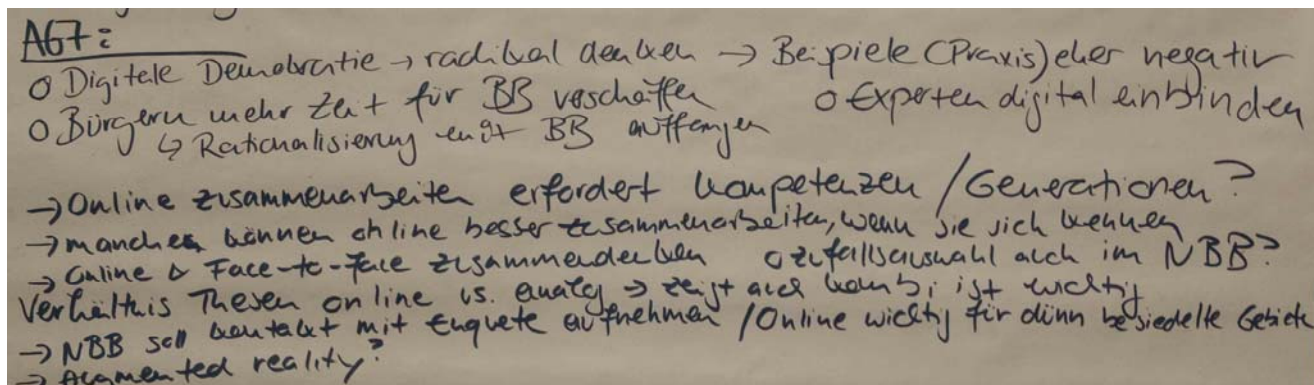 AG7:
o Digitale Demokratie → radikal denken → Beispiele (Praxis) eher negativ
o Bürgern mehr Zeit für BB verschaffen o Experten digital einbinden
↳ Rationalisierung mit BB auffangen
→ Online zusammenarbeiten erfordert Kompetenzen / Generationen?
→ manche können online besser zusammenarbeiten, wenn sie sich kennen
→ Online & Face-to-face zusammendenken o Zufallsauswahl auch im NBB?
Verhältnis Thesen online vs. analog → zeigt auch Kombi ist wichtig
→ NBB soll Kontakt mit Enquete aufnehmen / Online wichtig für dünn besiedelte Gebiete
→ Augmented reality?